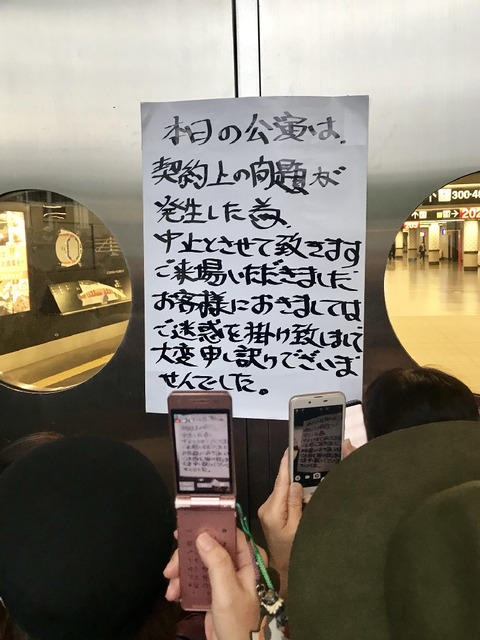 本日の公演は、
契約上の問題が
発生した為、
中止とさせて致きます
ご来場いただきました
お客様におきましては
ご迷惑を掛け致しまして
大変申し訳けございま
せんでした。
300-40
202